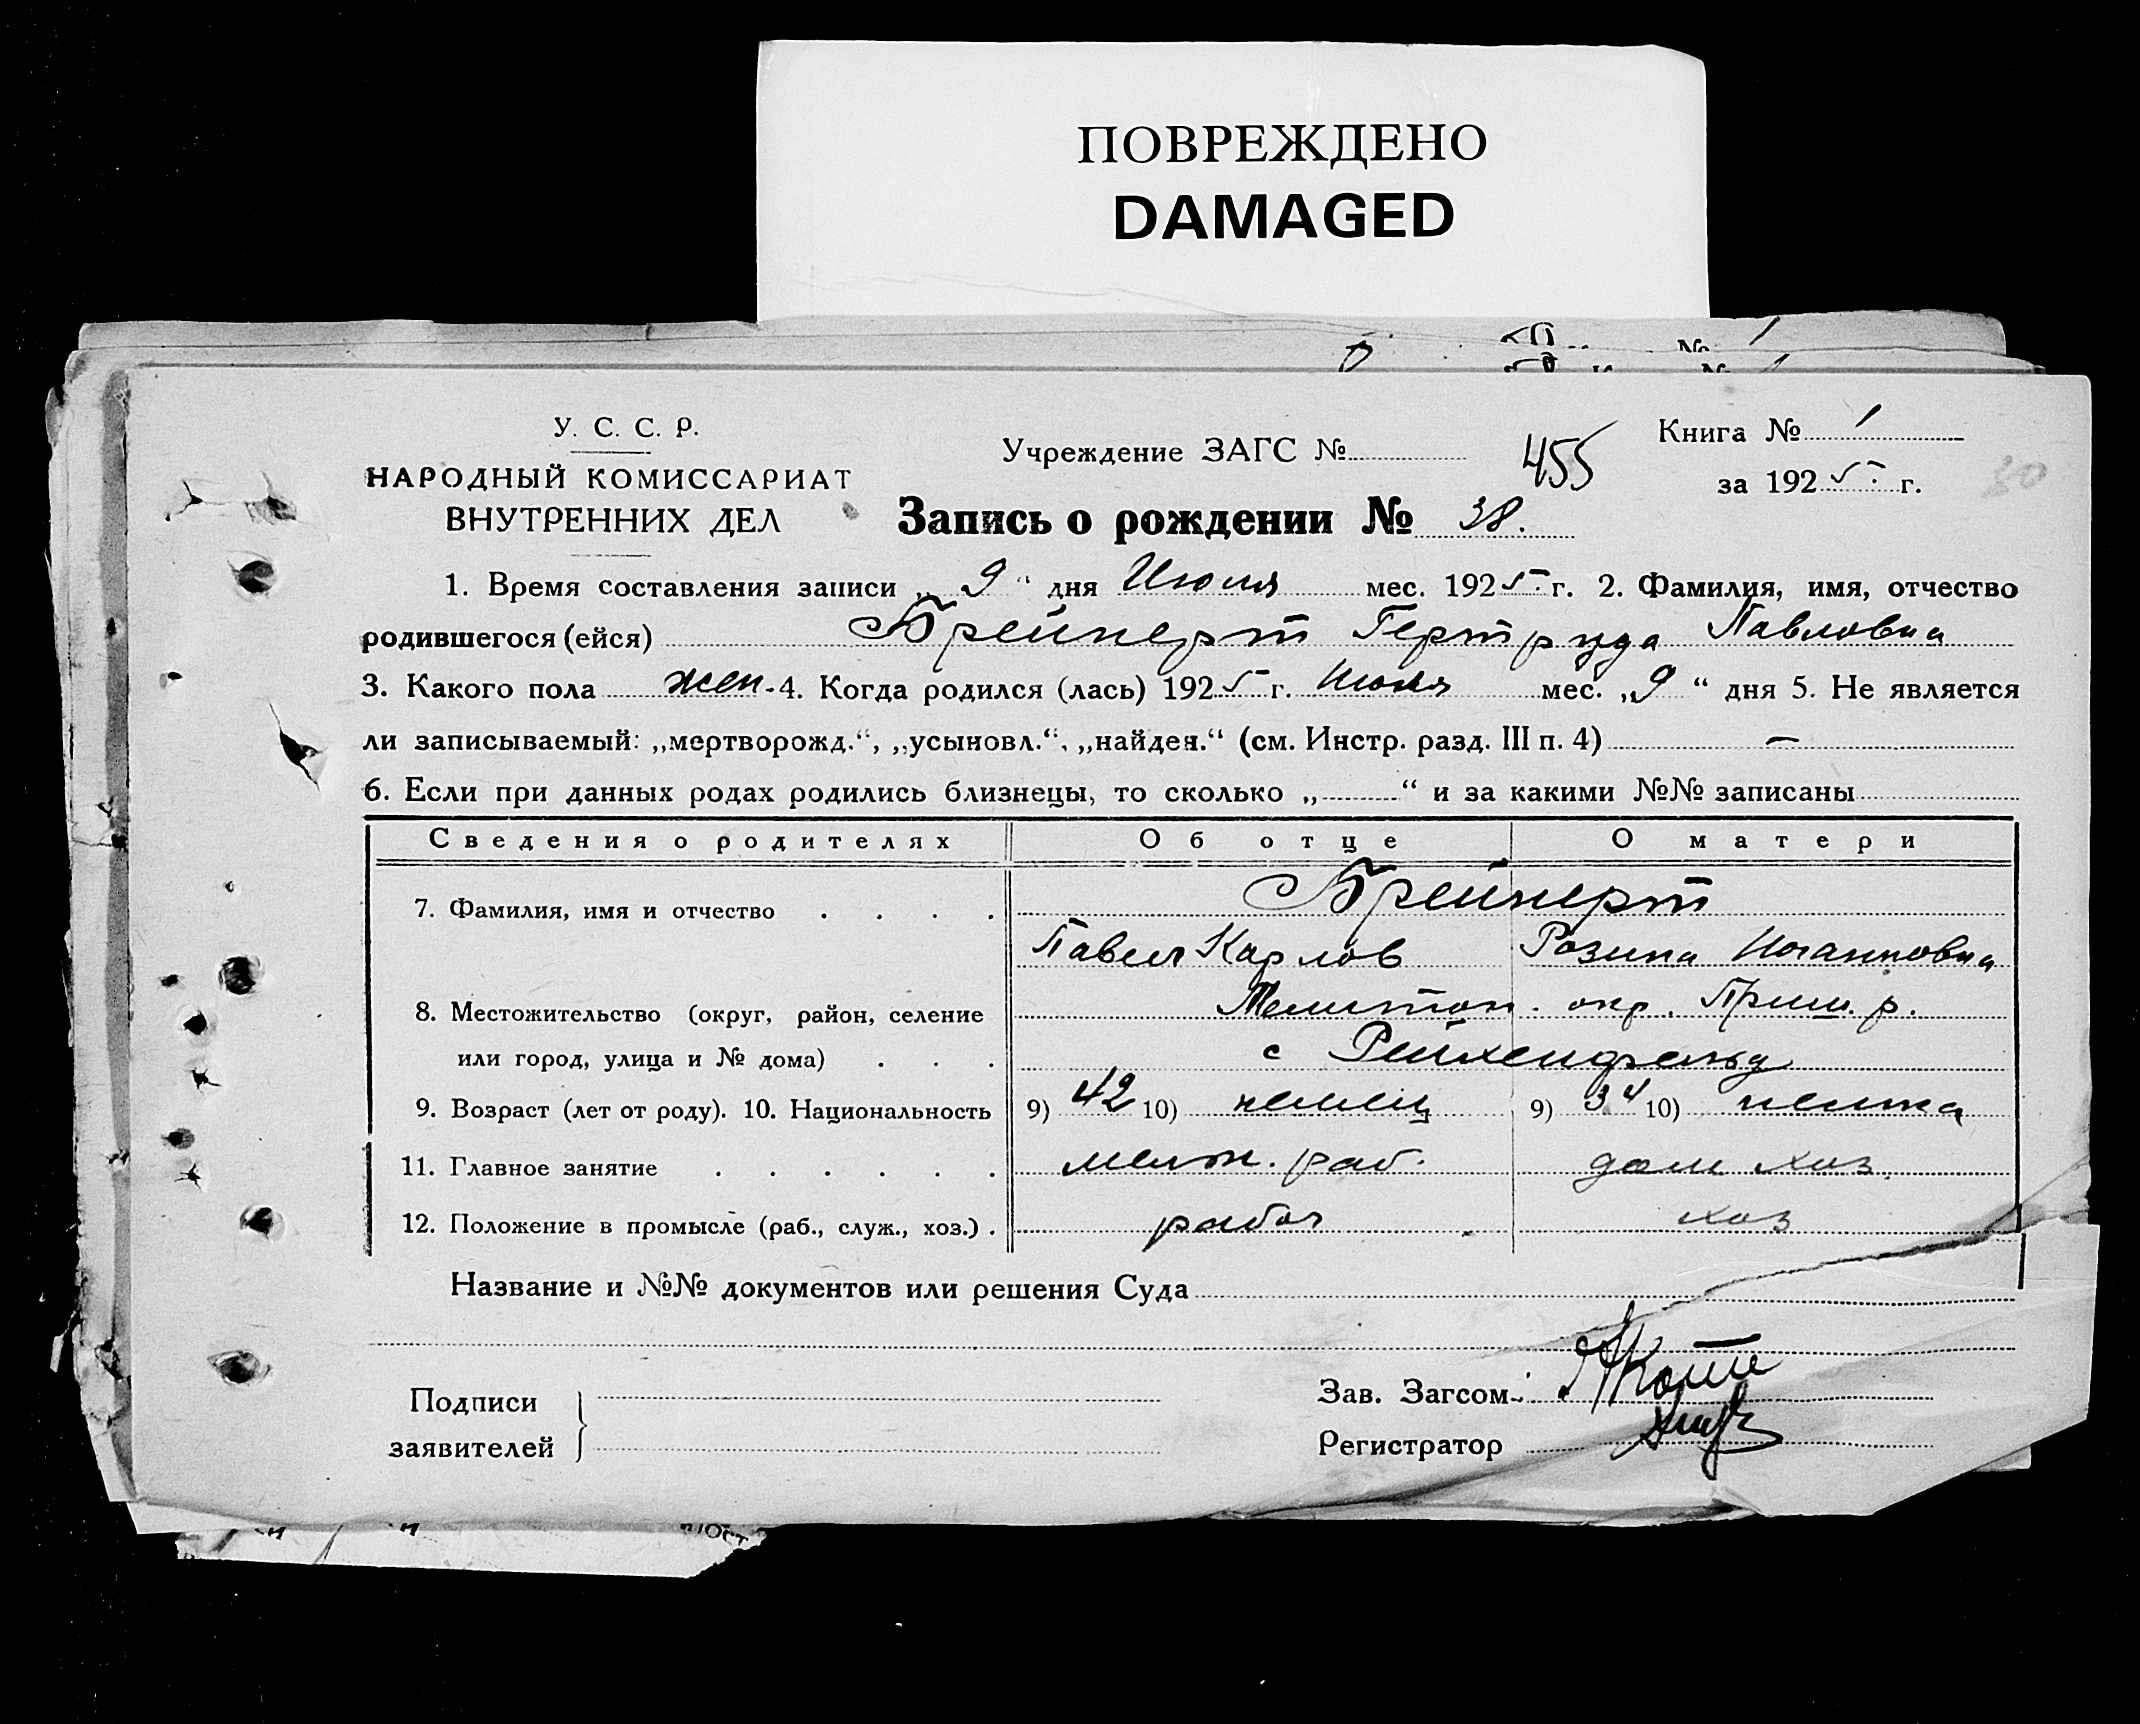 ПОВРЕЖДЕНО
DAMAGED
У. С. С. Р.
НАРОДНЫЙ КОМИССАРИАТ
ВНУТРЕННИХ ДЕЛ
Учреждение ЗАГС №
455
Книга № 1
за 1925 г.
30
Запись о рождении № 38.
1. Время составления записи „ 9 “ дня Июля мес. 1925 г. 2. Фамилия, имя, отчество
родившегося (ейся) Брейнерт Гертруда Павловна
3. Какого пола жен. 4. Когда родился (лась) 1925 г. июля мес. „ 9 “ дня 5. Не является
ли записываемый: „мертворожд.“, „усыновл.“, „найден.“ (см. Инстр. разд. III п. 4) —
6. Если при данных родах родились близнецы, то сколько „ “ и за какими №№ записаны
Сведения о родителях Об отце О матери
7. Фамилия, имя и отчество . . . . Брейнерт
Павел Карлов Розина Иоганновна
8. Местожительство (округ, район, селение Мелитоп. окр. Приш. р.
или город, улица и № дома) . . . с Рейхенфельд
9. Возраст (лет от роду). 10. Национальность 9) 42 10) немец 9) 34 10) немка
11. Главное занятие . . . . . . раб. дом хоз
12. Положение в промысле (раб., служ., хоз.) . рабоч хоз
Название и №№ документов или решения Суда
Подписи
заявителей
Зав. Загсом
Регистратор